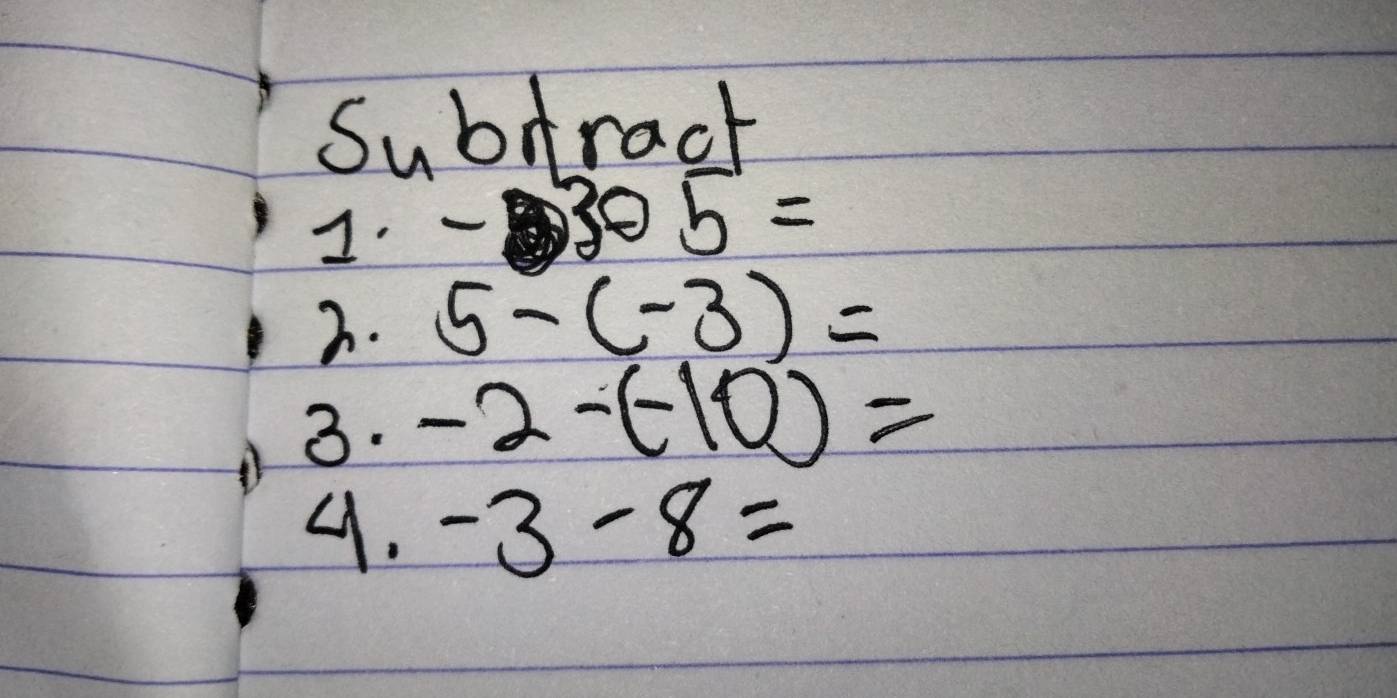 Subtract
1. - 30 5 =
2. 5 - (-3) =
3. -2 - (-10) =
4. -3 - 8 =